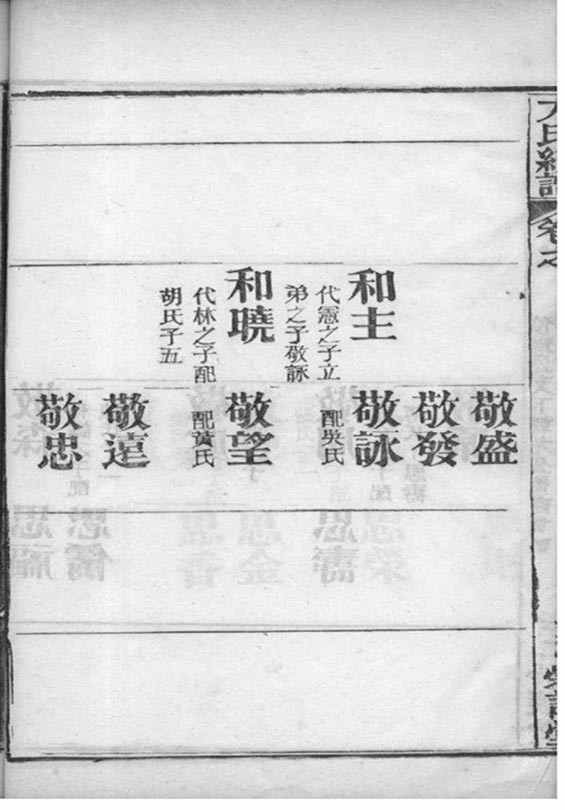 卷之
和主
代憲之子立
弟之子敬詠
和曉
代林之子配
胡氏子五
敬盛
敬發
敬詠
配吳氏
敬望
配黃氏
敬遠
敬忠